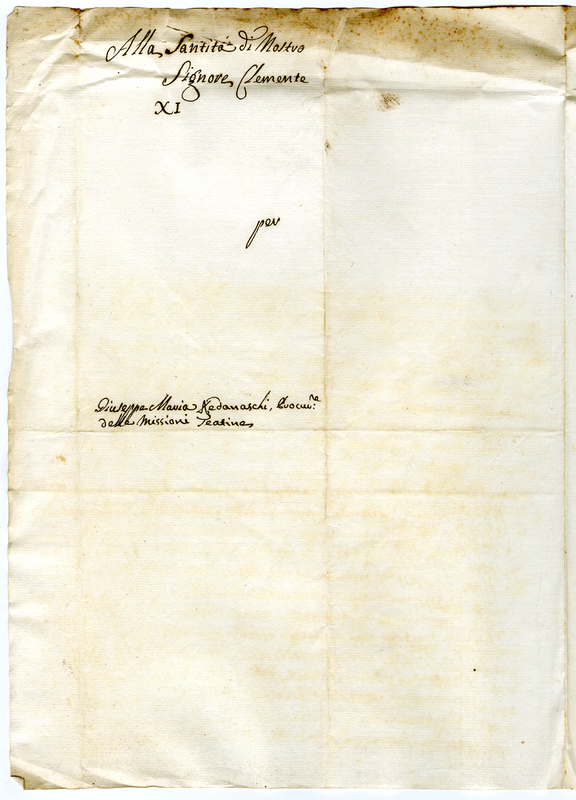 Alla Santità di Nostro
Signore Clemente
XI
per
Giuseppe Maria Redanaschi, Procur.re
delle Missioni Teatine